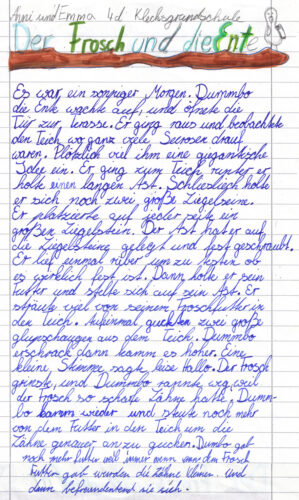 Anni und Emma 4d Klecksgrundschule
Der Frosch und die Ente
Es war ein sonniger Morgen. Dummbo
die Ente wachte auf, und öfnete die
Tür zur Terasse. Er ging raus und beobachtete
den Teich wo ganz viele Seerosen drauf
waren. Plötzlich viel ihm eine gigantische
Idee ein. Er ging zum Teich runter er
holte einen langen Ast. Schliedslich holte
er sich noch zwei, große Ziegelseine.
Er platzierte auf jeder seite ein
großen Ziegelstein. Der Ast hat er auf
die Ziegelsteine gelegt und fest geschraubt.
Er lief einmal rüber um zu testen ob
es wirklich fest ist. Dann holte er sein
Futter und stelte sich auf sein Ast. Er
sträute viel von seinem Froschfutter in
den Teich. Aufeinmal guckten zwei große
glupschaugen aus dem Teich. Dummbo
erschrack dann kamm es höher. Eine
kleine Stimme sagte leise Hallo. Der Frosch
grinste, und Dummbo rannte weg weil
der Frosch so scharfe Zähne hatte. Dumm-
bo kamm wieder und steute noch mehr
von dem Futter in den Teich um die
Zähne genauer an zu gucken. Dumbo gab
noch mehr futter weil immer wenn man den Frosch
Futter gab wurden die Zähne kleiner. Und
dann befreundenten sie sich.